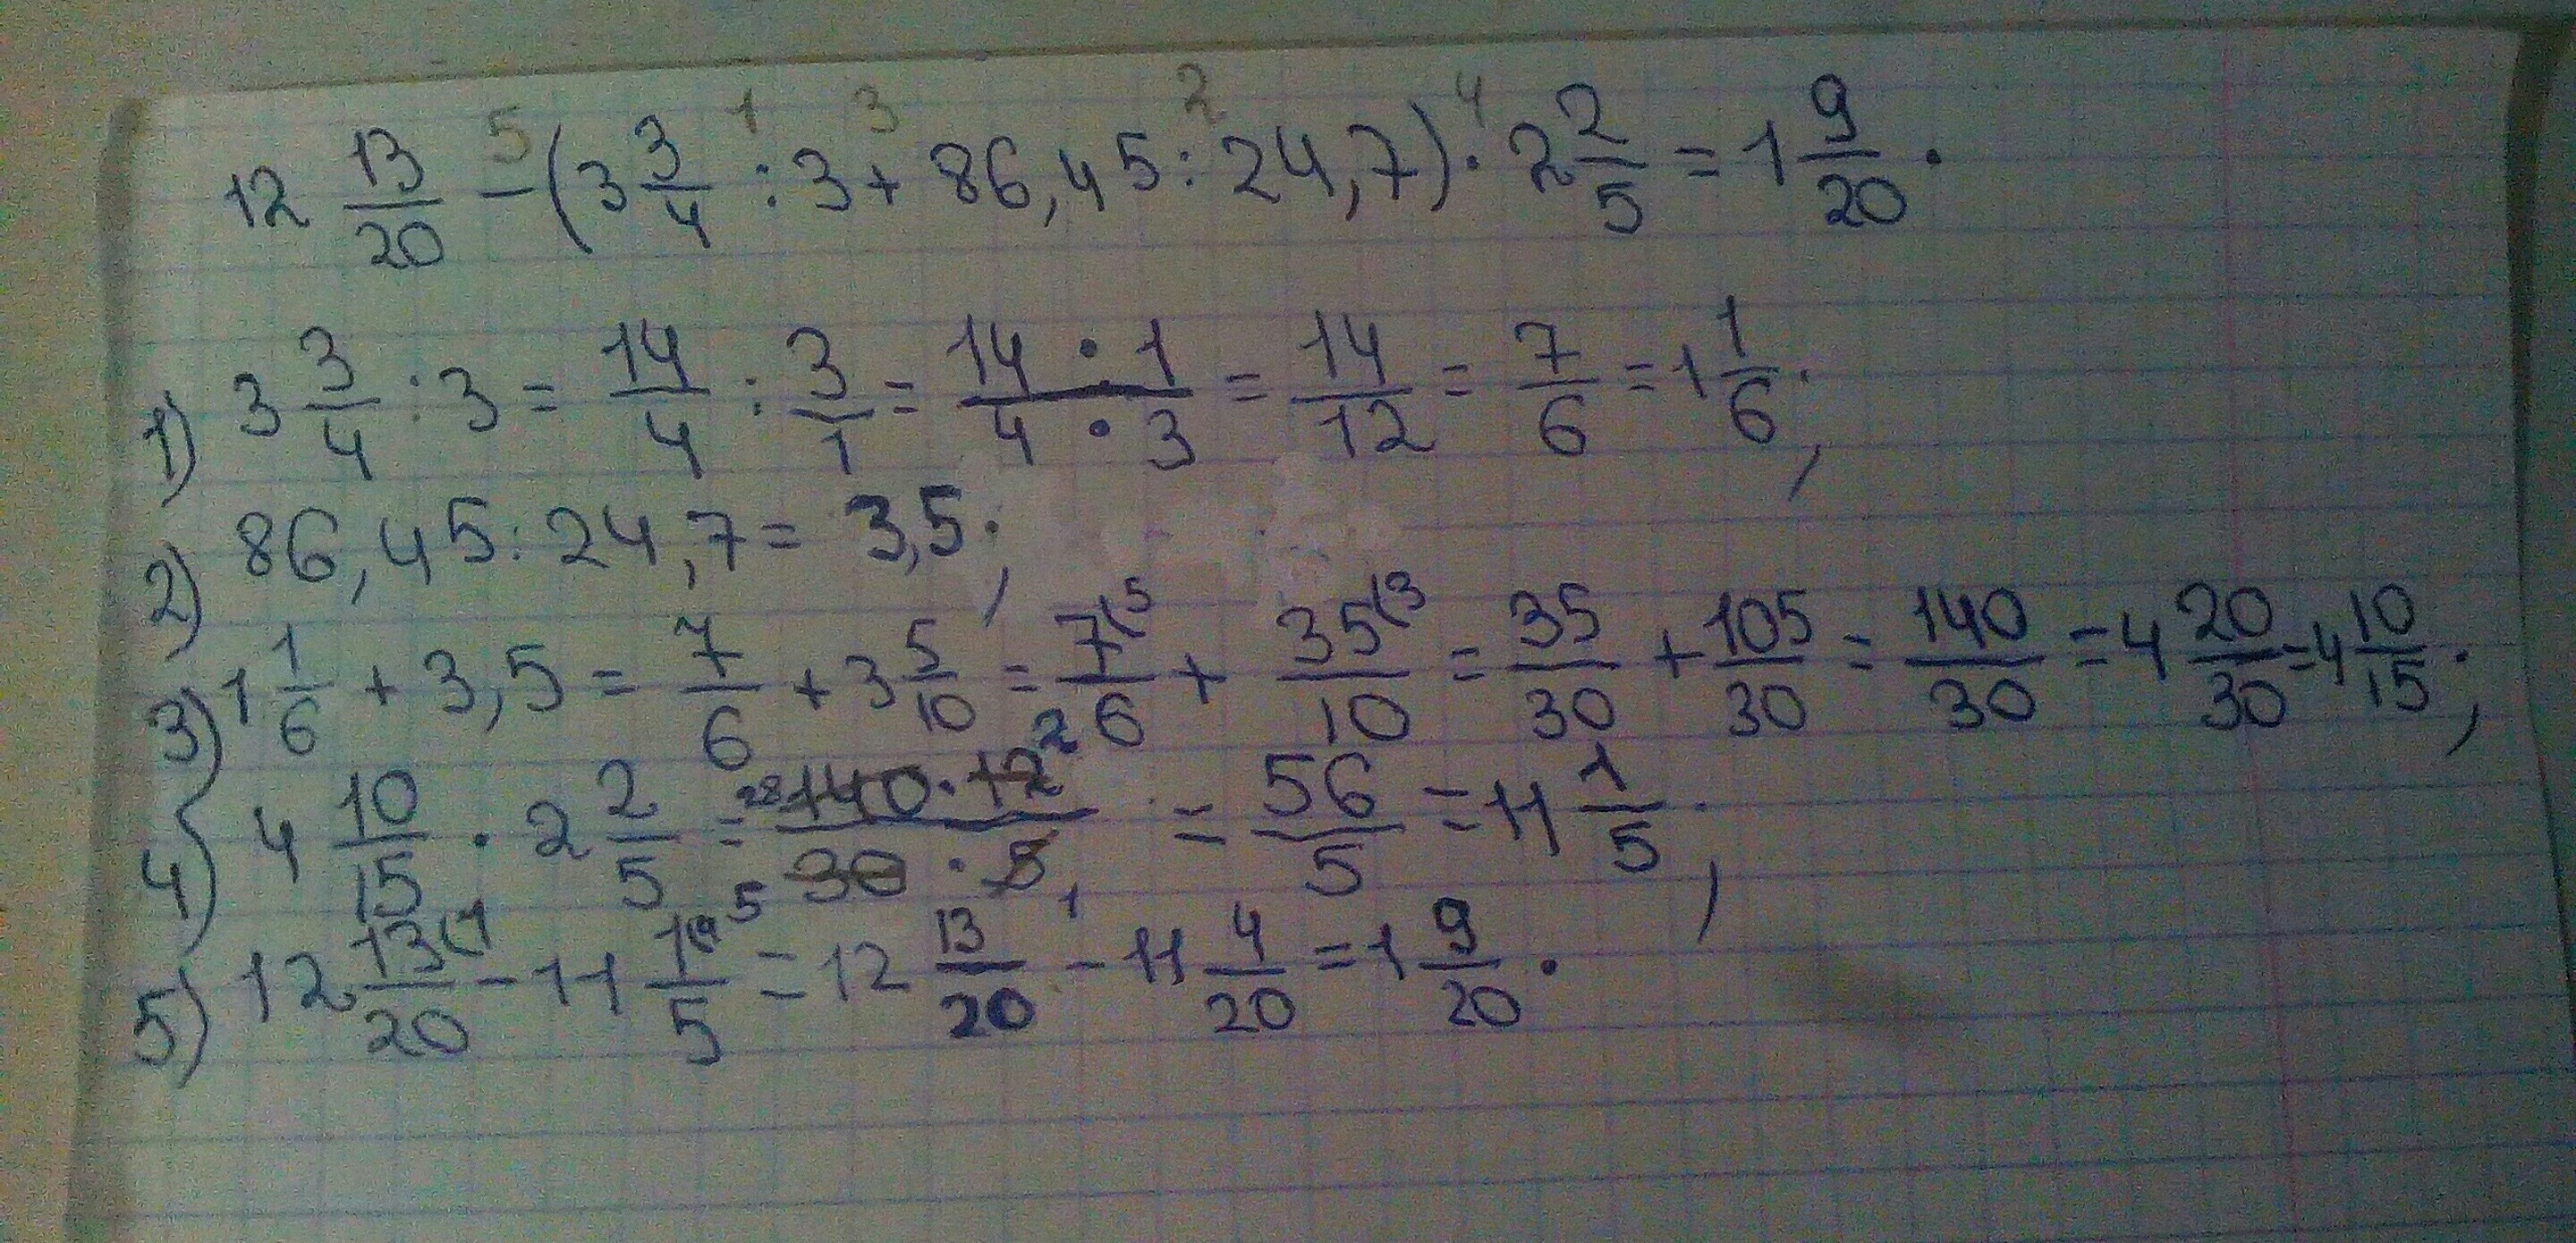 12 13/20 - (3 3/4 : 3 + 86,45 : 24,7) · 2 2/5 = 1 9/20 .
1) 3 3/4 : 3 = 14/4 : 3/1 = 14 · 1/4 · 3 = 14/12 = 7/6 = 1 1/6 ;
2) 86,45 : 24,7 = 3,5 ;
3) 1 1/6 + 3,5 = 7/6 + 3 5/10 = 7(5/6 + 35(3/10 = 35/30 + 105/30 = 140/30 = 4 20/30 = 4 10/15 ;
4) 4 10/15 · 2 2/5 = 140 · 12/30 · 5 = 56/5 = 11 1/5 ;
5) 12 13(1/20 - 11 1(4/5 = 12 13/20 - 11 4/20 = 1 9/20 .